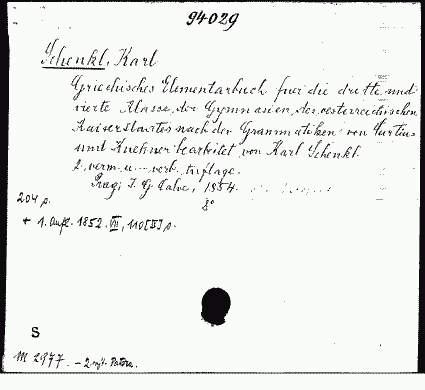 94029
Schenkl, Karl
Griechisches Elementarbuch fuer die dritte und
vierte Klasse der Gymnasien des oesterreichischen
Kaiserstaates nach der Grammatiken von Curtius
und Kuehner bearbeitet von Karl Schenkl.
2. verm. u. verb. Auflage.
Prag, I. G. Calve, 1854.
8°
204 p.
+ 1. Aufl. 1852. VII, 110[II] p.
S
M 2977. - 2